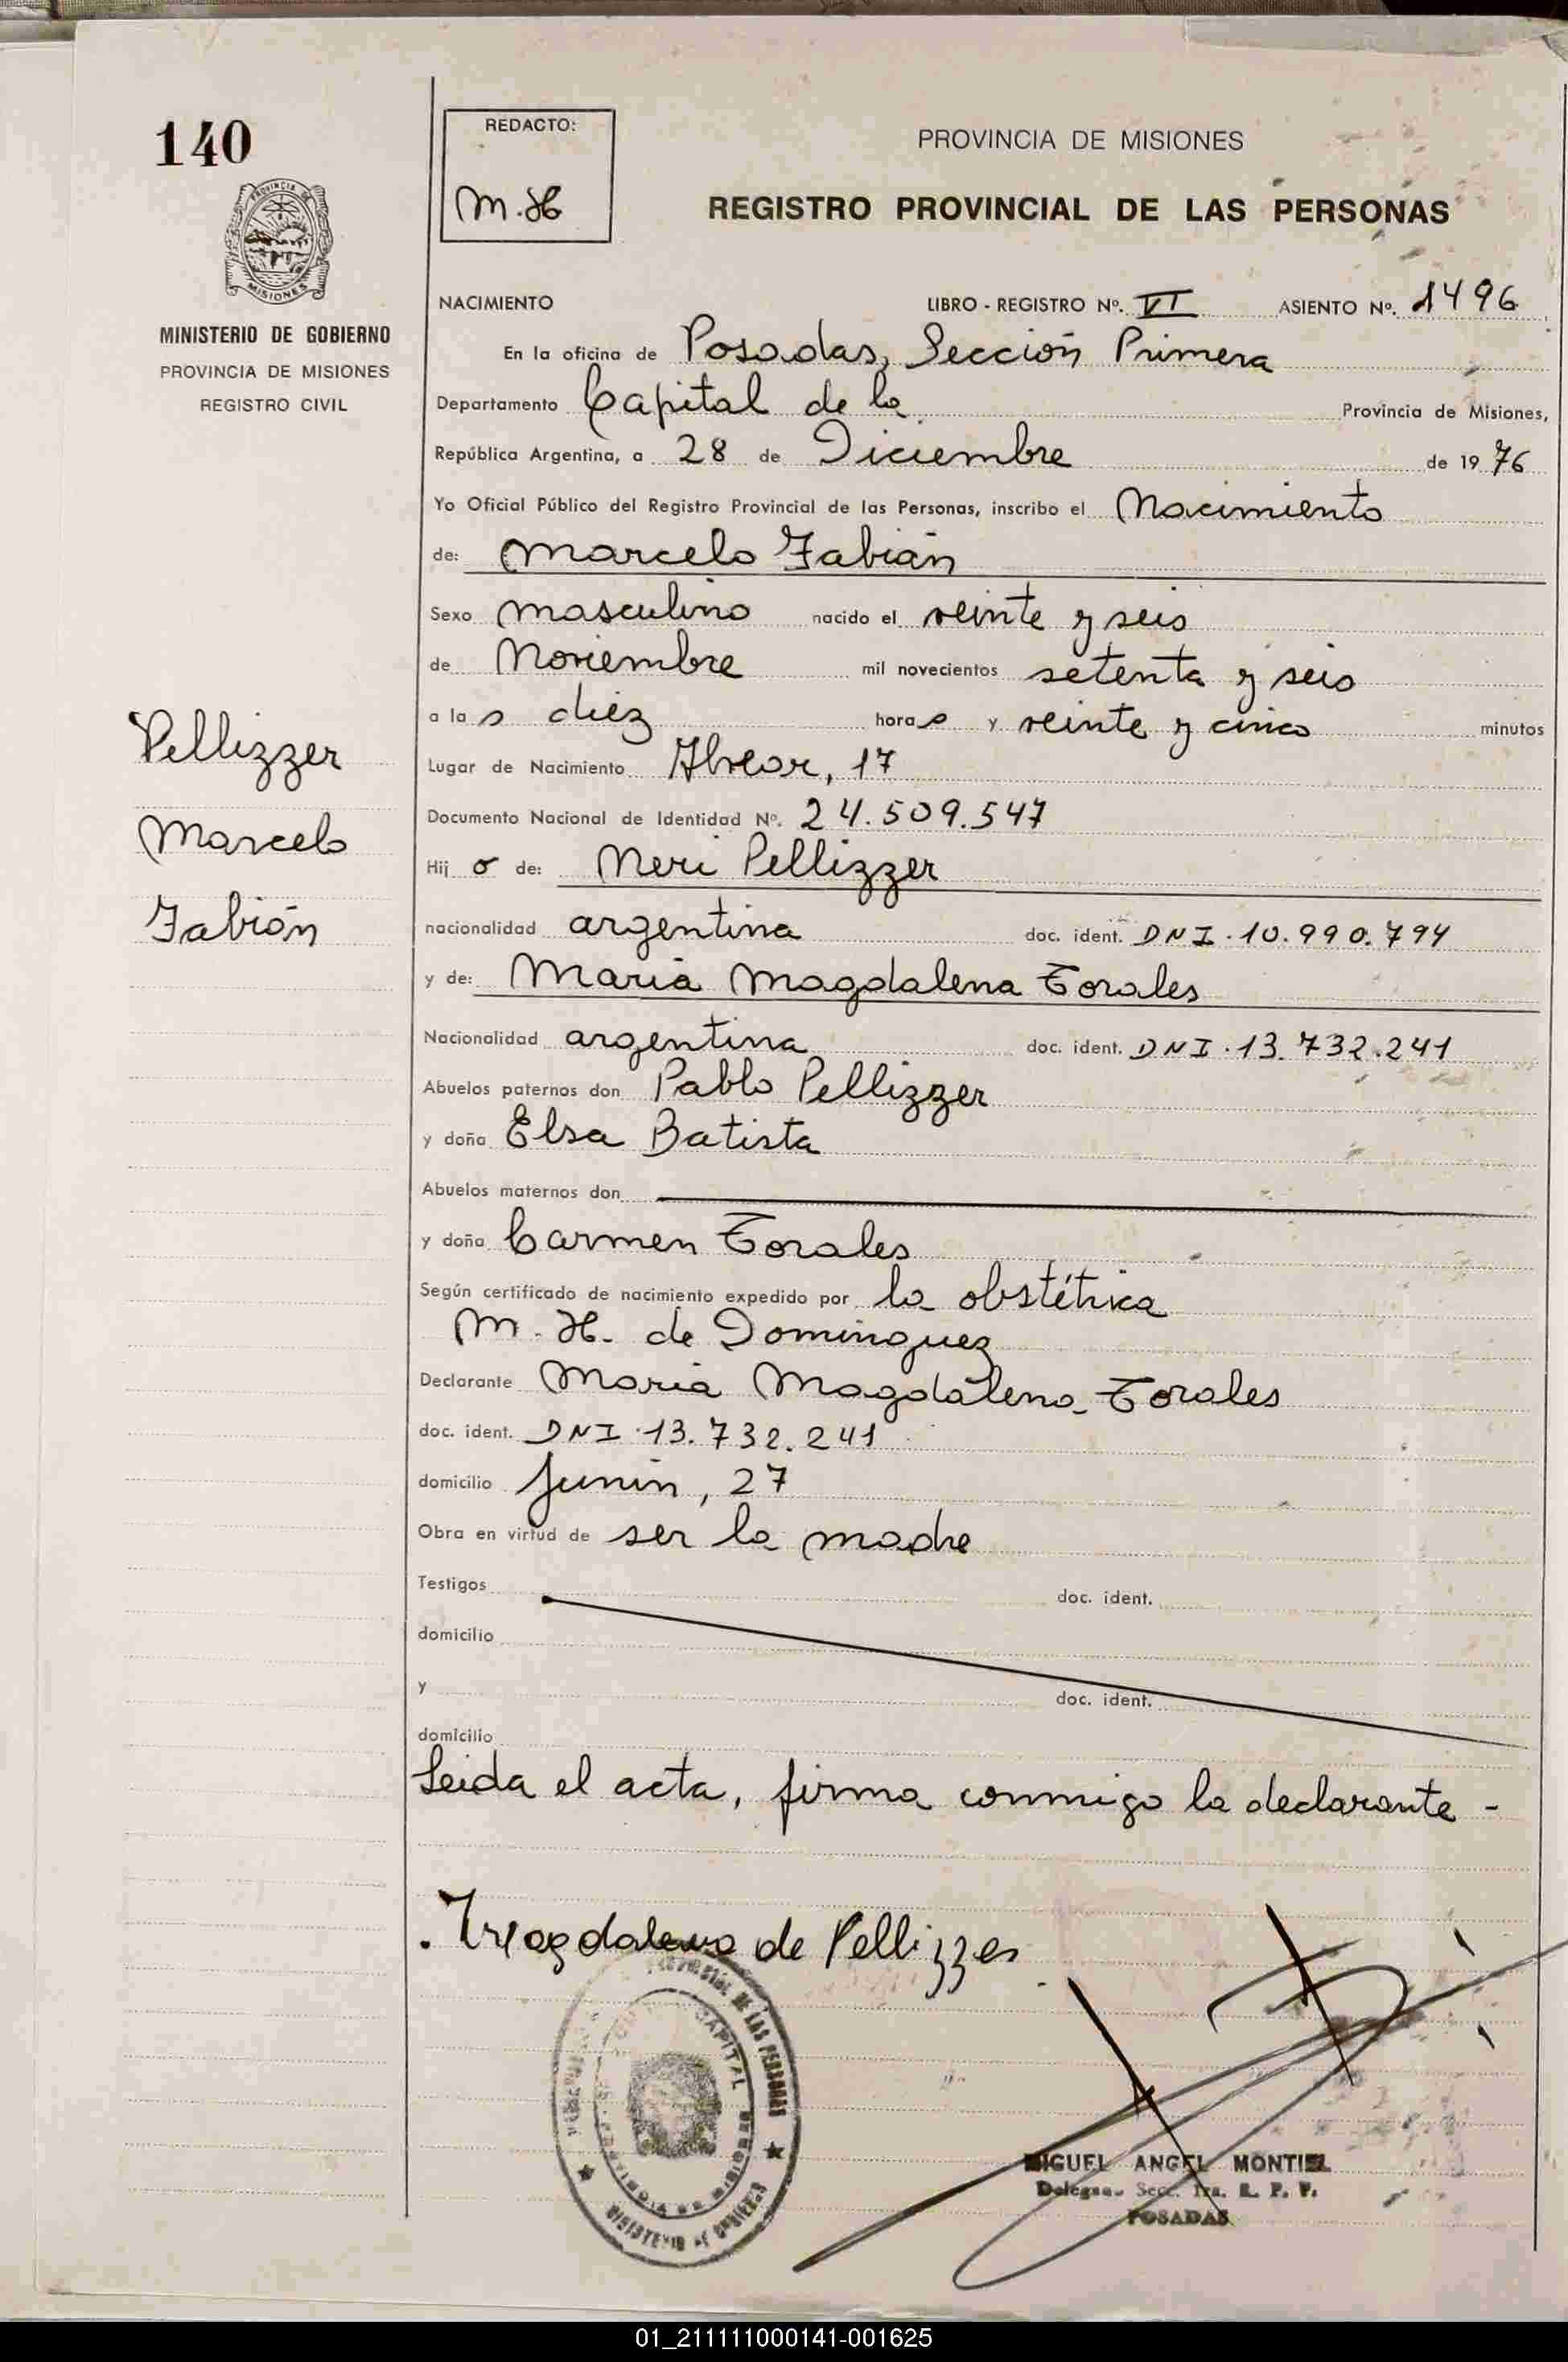 140
REDACTO:
M. H
PROVINCIA DE MISIONES
REGISTRO PROVINCIAL DE LAS PERSONAS
PROVINCIA DE
MISIONES
MINISTERIO DE GOBIERNO
PROVINCIA DE MISIONES
REGISTRO CIVIL
NACIMIENTO LIBRO - REGISTRO Nº. VI ASIENTO Nº. 1496
En la oficina de Posadas, Sección Primera
Departamento Capital de la Provincia de Misiones,
República Argentina, a 28 de Diciembre de 1976
Yo Oficial Público del Registro Provincial de las Personas, inscribo el Nacimiento
de: Marcelo Fabián
Sexo masculino nacido el veinte y seis
de Noviembre mil novecientos setenta y seis
a las diez horas y veinte y cinco minutos
Lugar de Nacimiento Alvear, 17
Documento Nacional de Identidad Nº. 24.509.547
Hijo de: Neri Pellizzer
nacionalidad argentina doc. ident. DNI. 10.990.794
y de: María Magdalena Torales
Nacionalidad argentina doc. ident. DNI. 13.732.241
Abuelos paternos don Pablo Pellizzer
y doña Elsa Batista
Abuelos maternos don
y doña Carmen Torales
Según certificado de nacimiento expedido por la obstétrica
M. H. de Dominguez
Declarante María Magdalena Torales
doc. ident. DNI. 13.732.241
domicilio Junín, 27
Obra en virtud de ser la madre
Testigos doc. ident.
domicilio
y doc. ident.
domicilio
Leida el acta, firma conmigo la declarante -
Pellizzer
Marcelo
Fabián
Magdalena de Pellizzer
DE LAS PERSONAS
CAPITAL
MINISTERIO DE GOBIERNO
MIGUEL ANGEL MONTIEL
Secc. 1ra. R. P. P.
POSADAS
01_211111000141-001625